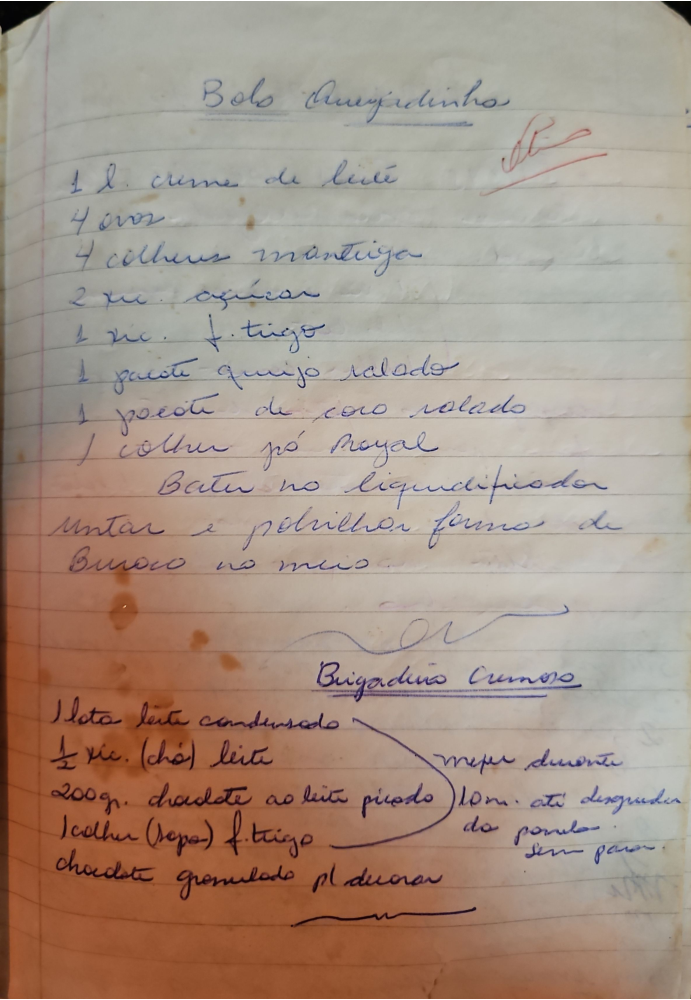 Bolo Queijadinha
1 l. creme de leite
4 ovos
4 colheres manteiga
2 xic. açúcar
1 xic. f. trigo
1 pacote queijo ralado
1 pacote de coco ralado
1 colher pó Royal
Bater no liquidificador
untar e polvilhar forma de
Buraco no meio.
Brigadeiro Cremoso
1 lata leite condensado
1/2 xic. (chá) leite
200gr. chocolate ao leite picado
1 colher (sopa) f. trigo
chocolate granulado p/ decorar
mexer durante
10m. até desgrudar
da panela.
sem parar.